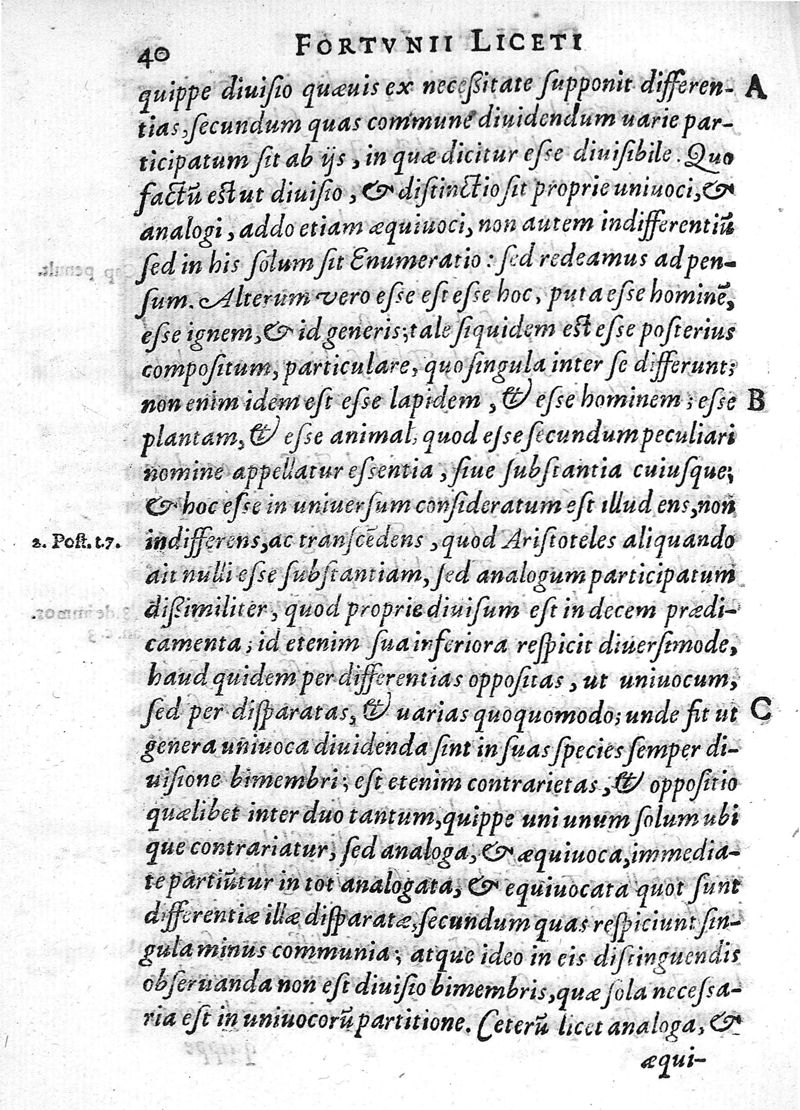 40 FORTVNII LICETI
quippe diuisio quæuis ex neceßitate supponit differen- A
tias, secundum quas commune diuidendum uarie par-
ticipatum sit ab ijs, in quæ dicitur esse diuisibile. Quo
factū est ut diuisio, & distinctio sit proprie uniuoci, &
analogi, addo etiam æquiuoci, non autem indifferentiū
sed in his solum sit Enumeratio: sed redeamus ad pen-
sum. Alterum vero esse est esse hoc, puta esse hominē,
esse ignem, & id generis; tale siquidem est esse posterius
compositum, particulare, quo singula inter se differunt;
non enim idem est esse lapidem, & esse hominem; esse B
plantam, & esse animal; quod esse secundum peculiari
nomine appellatur essentia, siue substantia cuiusque;
& hoc esse in uniuersum consideratum est illud ens, non
2. Post. t.7. indifferens, ac transcēdens, quod Aristoteles aliquando
ait nulli esse substantiam, sed analogum participatum
dißimiliter, quod proprie diuisum est in decem prædi-
camenta; id etenim sua inferiora respicit diuersimode,
haud quidem per differentias oppositas, ut uniuocum;
sed per disparatas, & uarias quoquomodo; unde fit ut C
genera uniuoca diuidenda sint in suas species semper di-
uisione bimembri; est etenim contrarietas, & oppositio
quælibet inter duo tantum, quippe uni unum solum ubi
que contrariatur; sed analoga, & æquiuoca, immedia-
te partiūtur in tot analogata, & equiuocata quot sunt
differentiæ illæ disparatæ, secundum quas respiciunt sin-
gula minus communia; atque ideo in eis distinguendis
obseruanda non est diuisio bimembris, quæ sola necessa-
ria est in uniuocorū partitione. Ceterū licet analoga, &
æqui-